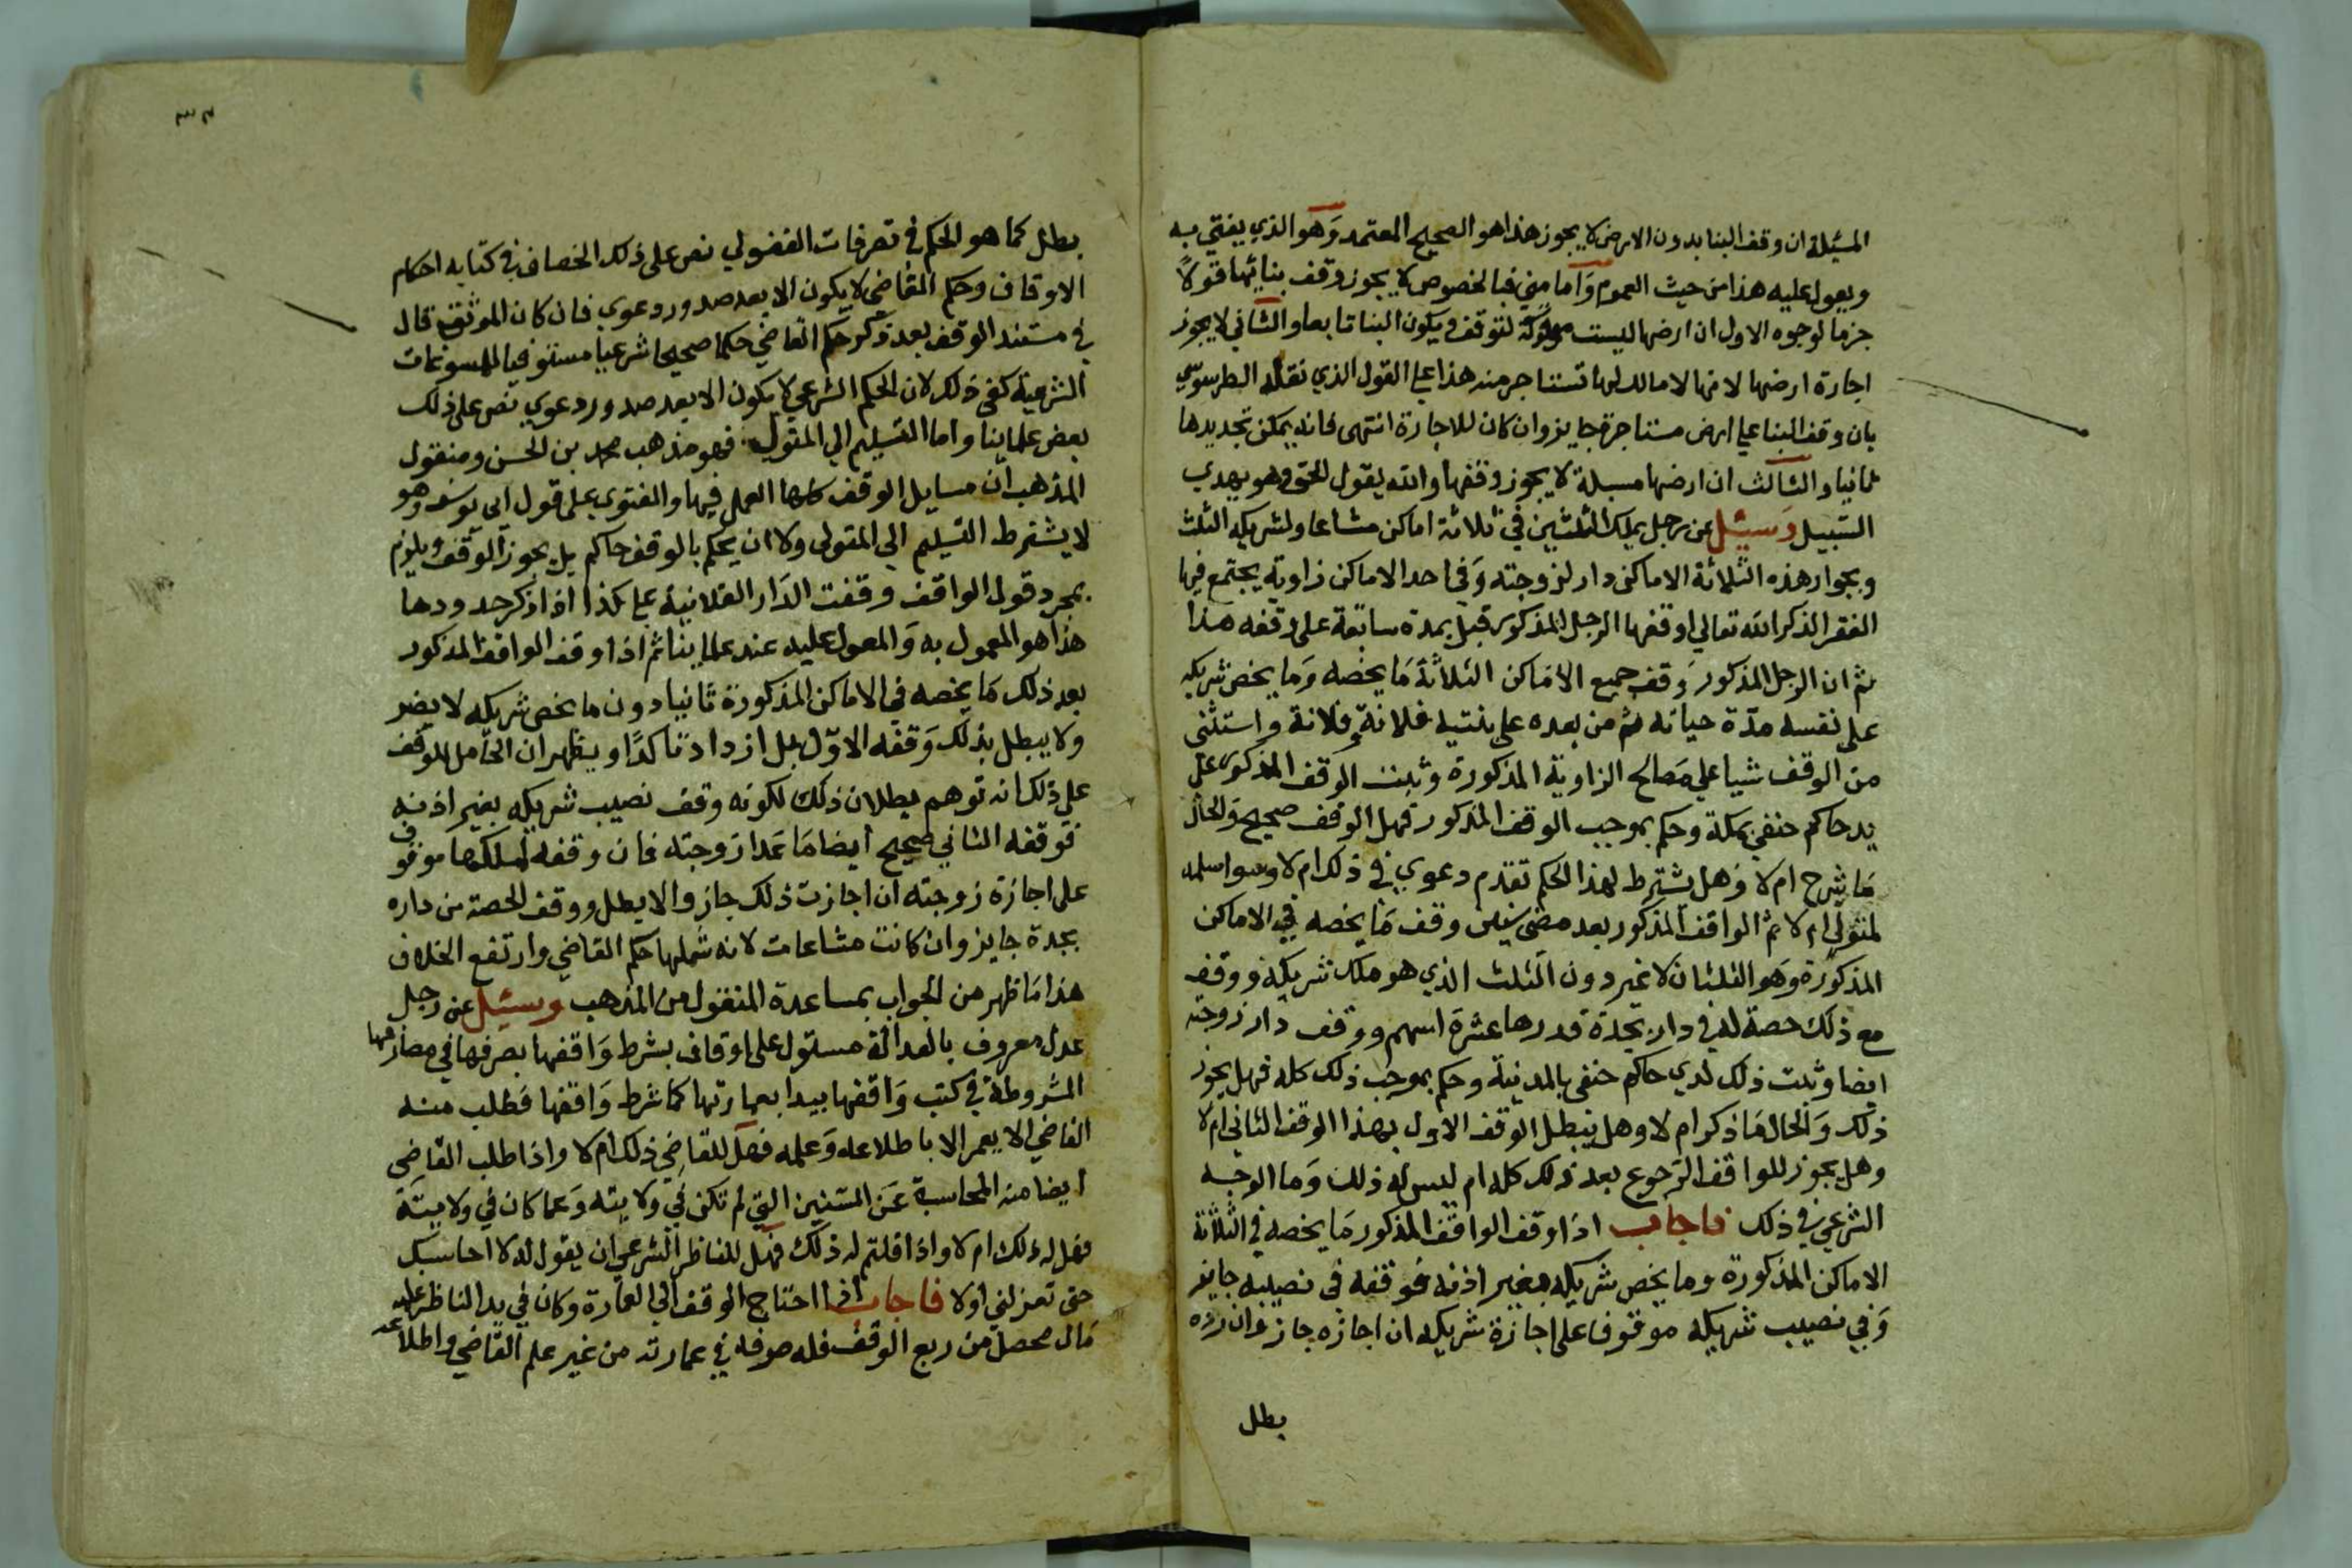 المسئلة ان وقف البنا بدون الارض لا يجوز هذا هو الصحيح المعتمد وهو الذي يفتي به
ويعول عليه هذا من حيث العموم واما مني فبالخصوص لا يجوز وقف بنائها قولاً
جزما لوجوه الاول ان ارضها ليست مملوكة لتوقف ويكون البنا تابعا والثاني لا يجوز
اجارة ارضها لانها لا مالك لها تستاجر منه هذا علي القول الذي نقله الطرسوسي
بان وقف البنا علي ارض مستاجرة جايز وان كان للاجارة انتهى فانه يمكن تجديدها
ثانيا والثالث ان ارضها مسبلة لا يجوز وقفها والله يقول الحق وهو يهدي
السبيل وسئل عن رجل يملك الثلثين في ثلاثة اماكن مشاعا ولشريكه الثلث
وبجوار هذه الثلاثة الاماكن دار لزوجته وفي احد الاماكن زاوية يجتمع فيها
الفقرا لذكر الله تعالي اوقفها الرجل المذكور قبل بمدة سابقة على وقفه هذا
ثم ان الرجل المذكور وقف جميع الاماكن الثلاثة ما يخصه وما يخص شريكه
على نفسه مدة حياته ثم من بعده علي بنتيه فلانة وفلانة واستثنى
من الوقف شيا علي مصالح الزاوية المذكورة وثبت الوقف المذكور علي
يد حاكم حنفي بمكة وحكم بموجب الوقف المذكور فهل الوقف صحيح والحال
ما شرح ام لا وهل يشترط لهذا الحكم تقدم دعوي في ذلك ام لا وسوا سلمه
لمتولي ام لا ثم الواقف المذكور بعد مضي سنين وقف ما يخصه في الاماكن
المذكورة وهو الثلثان لا غير دون الثلث الذي هو ملك شريكه ووقف
مع ذلك حصة له في دار بجدة قدرها عشرة اسهم ووقف دار زوجته
ايضا وثبت ذلك لدي حاكم حنفي بالمدينة وحكم بموجب ذلك كله فهل يجوز
ذلك والحال ما ذكر ام لا وهل يبطل الوقف الاول بهذا الوقف الثاني ام لا
وهل يجوز للواقف الرجوع بعد ذلك كله ام ليس له ذلك وما الوجه
الشرعي في ذلك فاجاب اذا وقف الواقف المذكور ما يخصه في الثلاثة
الاماكن المذكورة وما يخص شريكه بغير اذنه فوقفه في نصيبه جايز
وفي نصيب شريكه موقوفا على اجازة شريكه ان اجازه جاز وان رده
بطل
بطل كما هو الحكم في تصرفات الفضولي نص على ذلك الخصاف في كتابه احكام
الاوقاف وحكم القاضي لا يكون الا بعد صدور دعوي فان كان الموثق قال
في مستند الوقف بعد ذكر حكم القاضي حكما صحيحا شرعيا مستوفيا للمسوغات
الشرعية كفى ذلك لان الحكم الشرعي لا يكون الا بعد صدور دعوي نص على ذلك
بعض علماينا واما التسليم الي المتولي فهو مذهب محمد بن الحسن ومنقول
المذهب ان مسايل الوقف كلها العمل فيها والفتوى على قول ابي يوسف وهو
لا يشترط التسليم الي المتولي ولا ان يحكم بالوقف حاكم بل يجوز الوقف ويلزم
بمجرد قول الواقف وقفت الدار الفلانية علي كذا اذا ذكر حدودها
هذا هو المعمول به والمعول عليه عند علماينا ثم اذا وقف الواقف المذكور
بعد ذلك ما يخصه في الاماكن المذكورة ثانيا دون ما يخص شريكه لا يضر
ولا يبطل بذلك وقفه الاول بل ازداد تاكدا ويظهر ان الحامل للوقف
علي ذلك انه توهم بطلان ذلك لكونه وقف نصيب شريكه بغير اذنه
فوقفه الثاني صحيح ايضا ما عدا زوجته فان وقفه لملكها موقوف
على اجازة زوجته ان اجازت ذلك جاز والا بطل ووقف الحصة من داره
بجدة جايز وان كانت مشاعات لانه شملها حكم القاضي وارتفع الخلاف
هذا ما ظهر من الجواب بمساعدة المنقول من المذهب وسئل عن رجل
عدل معروف بالعدالة مستول على اوقاف بشرط واقفها يصرفها في مصارفها
المشروطة في كتب واقفها يبدا بعمارتها كما شرط واقفها فطلب منه
القاضي الا يعمر الا باطلاعه وعلمه فهل للقاضي ذلك ام لا واذا طلب القاضي
ايضا منه المحاسبة عن السنين التي لم تكن في ولايته وعما كان في ولايته
فهل له ذلك ام لا واذا قلتم له ذلك فهل للناظر الشرعي ان يقول له لا احاسبك
حتى تعزلني اولا فاجاب اذا احتاج الوقف الي العمارة وكان في يد الناظر عليه
مال محصل من ريع الوقف فله صرفه في عمارته من غير علم القاضي واطلاعه